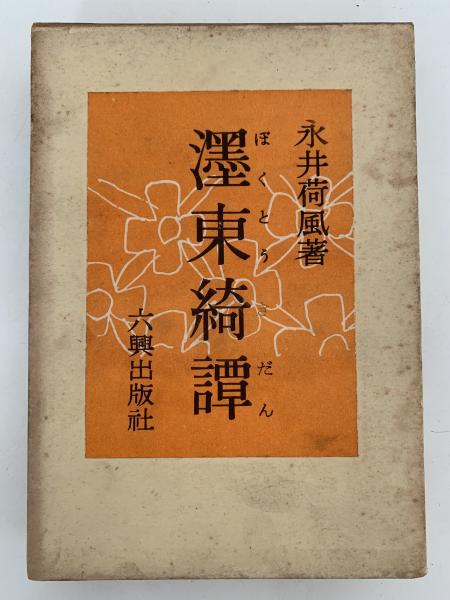 永井荷風著
濹東綺譚
ぼくとうきだん
六興出版社